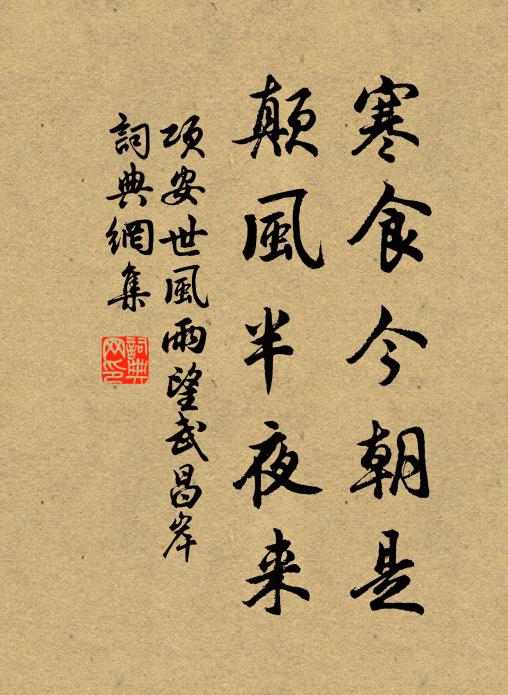 寒食今朝是
颠風半夜来
项安世風雨望武昌岸
詞典網集
詞典网印